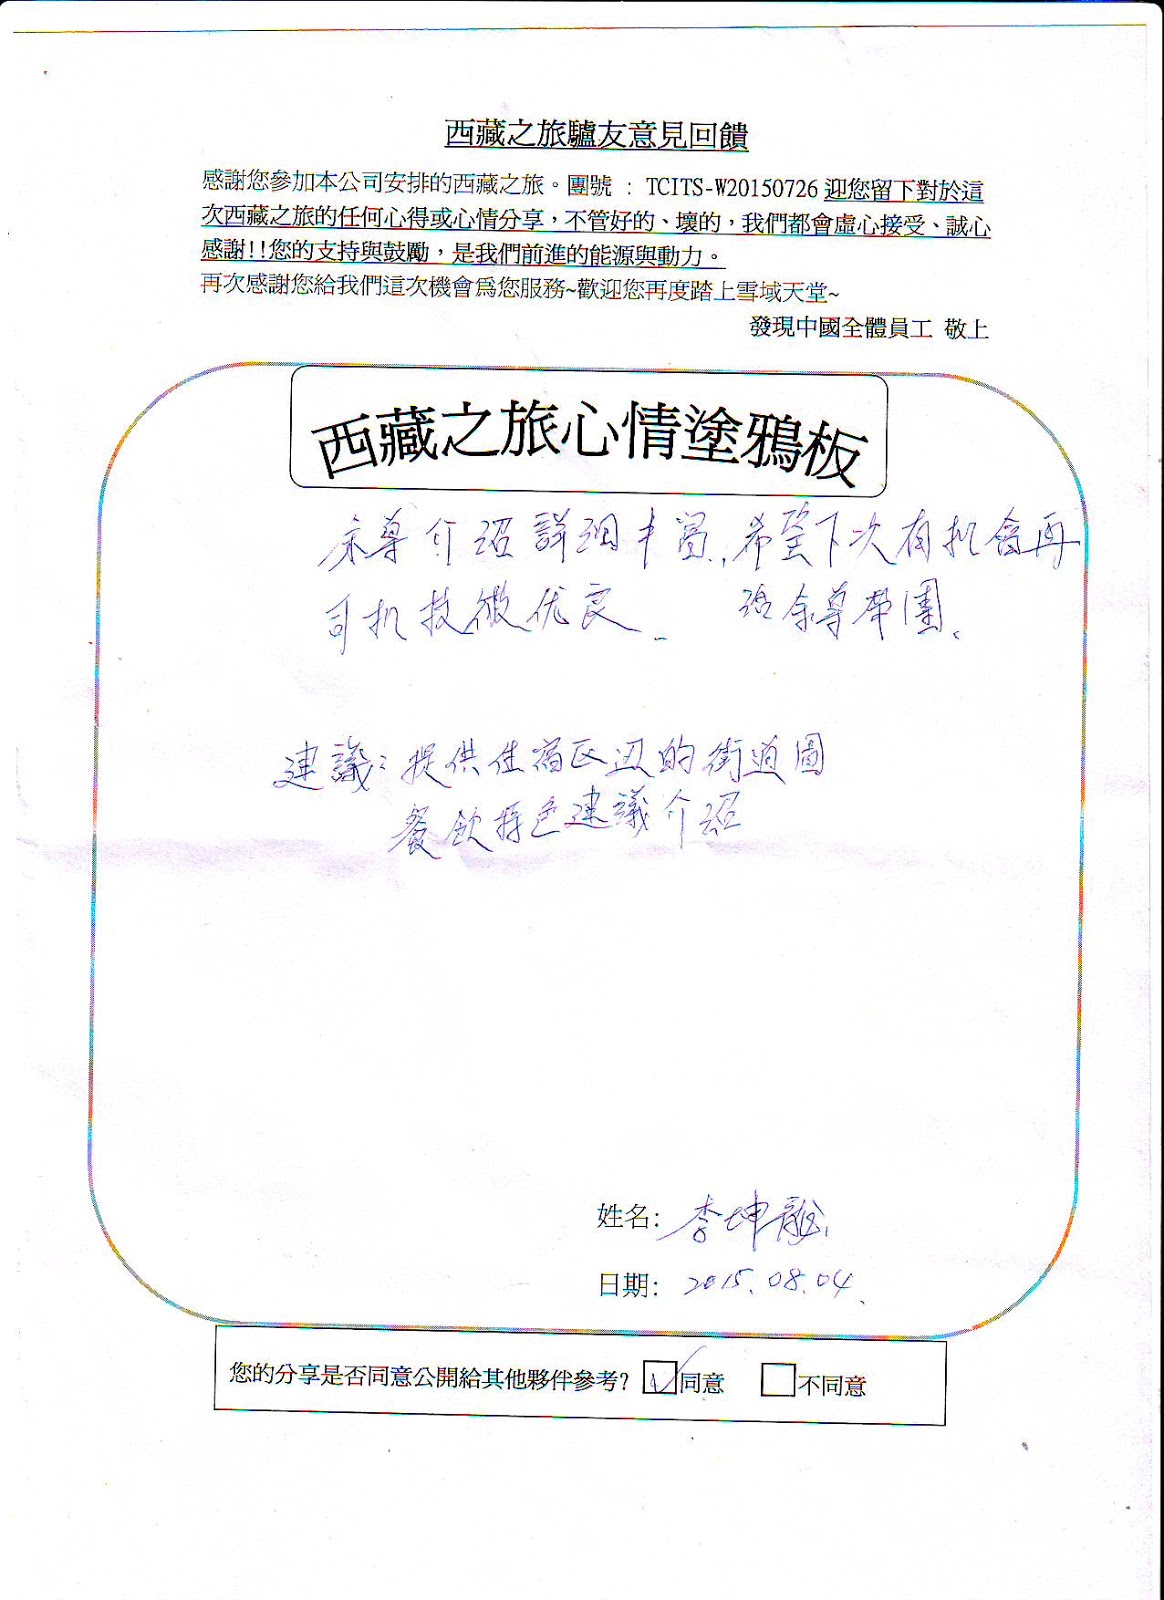 西藏之旅驢友意見回饋
感謝您參加本公司安排的西藏之旅。團號 : TCITS-W20150726 迎您留下對於這
次西藏之旅的任何心得或心情分享，不管好的、壞的，我們都會虛心接受、誠心
感謝!!您的支持與鼓勵，是我們前進的能源與動力。
再次感謝您給我們這次機會爲您服務~歡迎您再度踏上雪域天堂~
發現中國全體員工 敬上
西藏之旅心情塗鴉板
余導介紹詳細丰富，希望下次有机會再
司机技術优良 請余導帶團、
建議：提供住宿区边的街道圖
餐飲特色建議介紹
姓名: 李坤龍
日期: 2015.08.04.
您的分享是否同意公開給其他夥伴參考? 同意 不同意